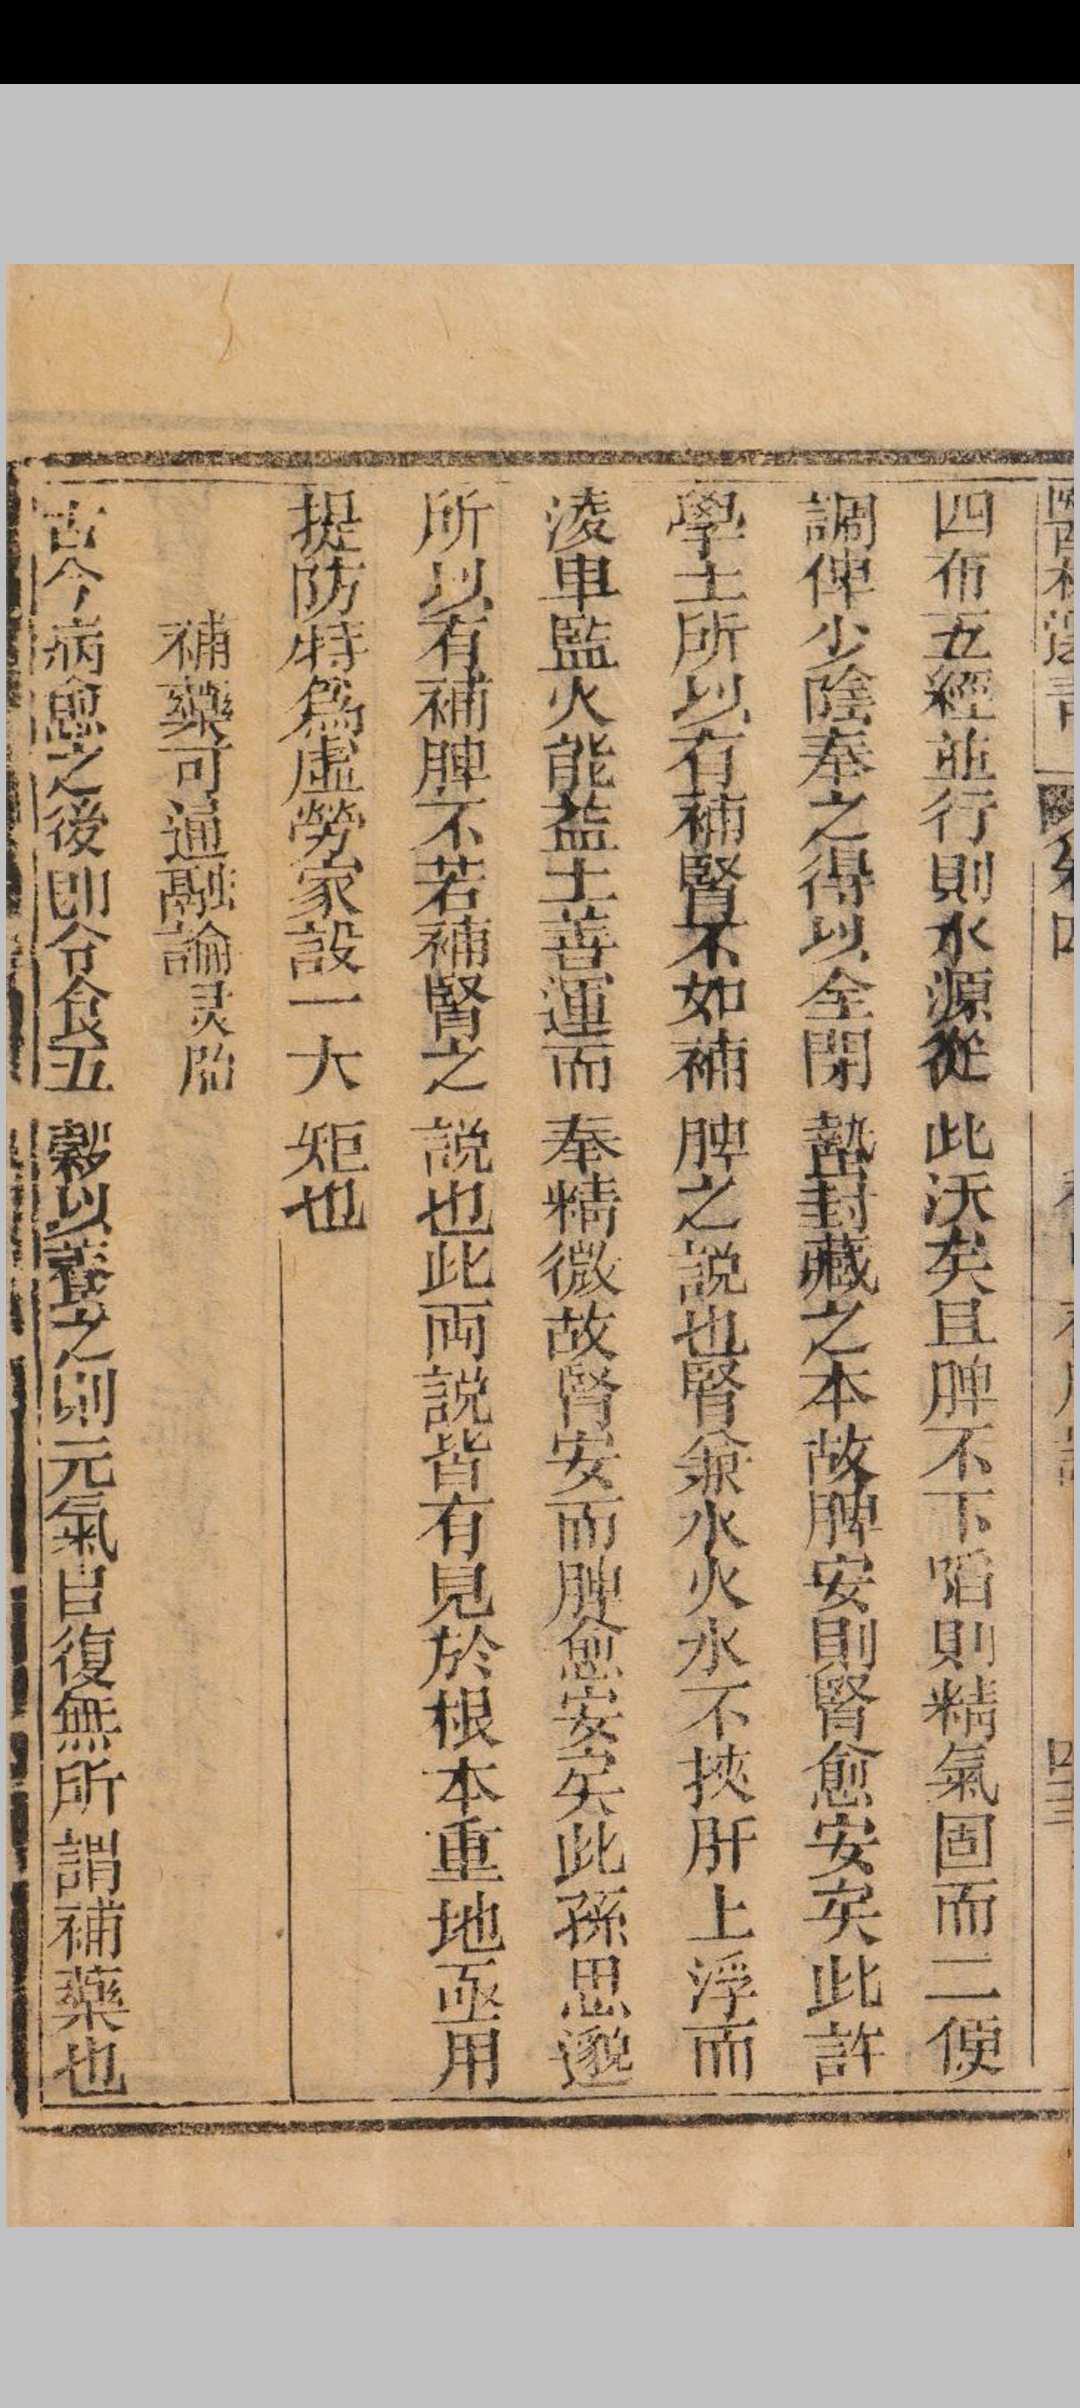 四布五經並行則水源從此沃矣且脾不下㗖則精氣固而二便
調俾少陰奉之得以全閉蟄封藏之本故脾安則腎愈安矣此許
學士所以有補腎不如補脾之説也腎兼水火水不挾肝上浮而
淩車監火能益土善運而奉精微故腎安而脾愈安矣此孫思邈
所以有補脾不若補腎之説也此両説皆有見於根本重地亟用
提防特爲虛勞家設一大矩也
補藥可通融論灵胎
古今病愈之後即令食五穀以養之則元氣自復無所謂補藥也